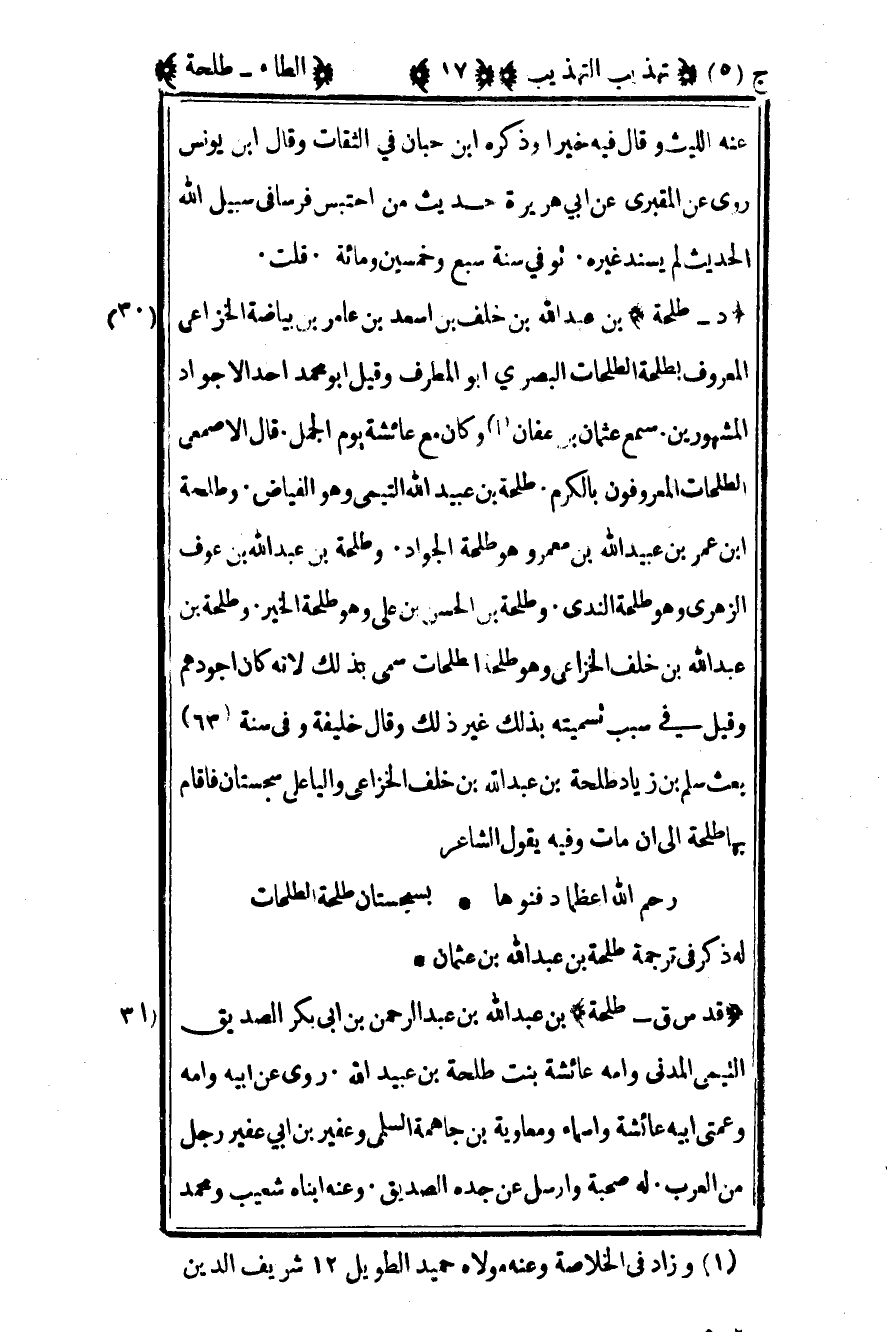 ج (٥) ﴿ تهذيب التهذيب ﴾ ﴿ ١٧ ﴾ ﴿ الطاء ـ طلحة ﴾
عنه الليث و قال فيه خيرا وذكره ابن حبان في الثقات وقال ابن يونس
روى عن المقبرى عن ابي هريرة حديث من احتبس فرسا فى سبيل الله
الحديث لم يسند غيره ٠ توفي سنة سبع وخمسين ومائة ٠ قلت ٠
﴿ د ـ طلحة ﴾ بن عبدالله بن خلف بن اسعد بن عامر بن بياضة الخزاعى (٣٠)
المعروف بطلحة الطلحات البصري ابو المطرف وقيل ابو محمد احد الاجواد
المشهورين ٠ سمع عثمان بن عفان (١) وكان مع عائشة يوم الجمل ٠ قال الاصمعى
الطلحات المعروفون بالكرم ٠ طلحة بن عبيد الله التيمى وهو الفياض ٠ وطلحة
ابن عمر بن عبيدالله بن معمر و هو طلحة الجواد ٠ وطلحة بن عبدالله بن عوف
الزهرى وهو طلحة الندى ٠ وطلحة بن الحسن بن على وهو طلحة الخير ٠ وطلحة بن
عبدالله بن خلف الخزاعى وهو طلحة الطلحات سمى بذلك لانه كان اجودهم
وقيل فى سبب تسميته بذلك غير ذلك وقال خليفة و فى سنة (٦٣)
بعث سلم بن زياد طلحة بن عبدالله بن خلف الخزاعى واليا على سجستان فاقام
بها طلحة الى ان مات وفيه يقول الشاعر
رحم الله اعظما دفنوها * بسجستان طلحة الطلحات
له ذكر فى ترجمة طلحة بن عبدالله بن عثمان *
﴿ قد س ق ـ طلحة ﴾ بن عبدالله بن عبدالرحمن بن ابى بكر الصديق (٣١
التيمى المدنى وامه عائشة بنت طلحة بن عبيد الله ٠ روى عن ابيه وامه
وعمتى ابيه عائشة واسماء ومعاوية بن جاهمة السلمى وعفير بن ابي عفير رجل
من العرب ٠ له صحبة وارسل عن جده الصديق ٠ وعنه ابناه شعيب ومحمد
(١) و زاد فى الخلاصة وعنه مولاه حميد الطويل ١٢ شريف الدين